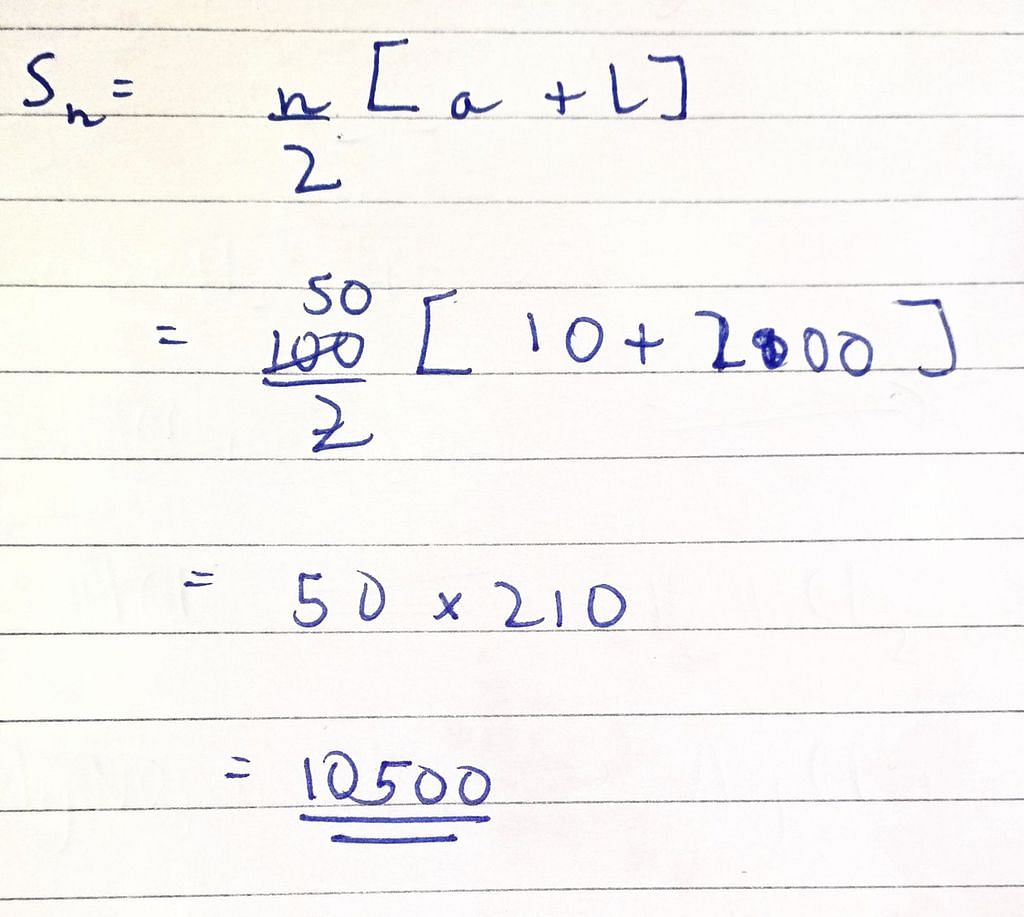 Sn = n/2 [a + L]
= 50 100/2 [10 + 2000]
= 50 x 210
= 10500